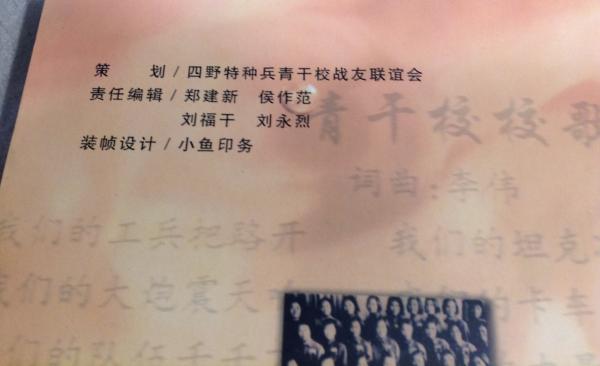 策 划 / 四野特种兵青干校战友联谊会
责任编辑 / 郑建新 侯作范
刘福干 刘永烈
装帧设计 / 小鱼印务
青干校校歌
词曲:李伟
我们的工兵把路开 我们的坦克
我们的大炮震天 我们的卡车
们的队伍千千